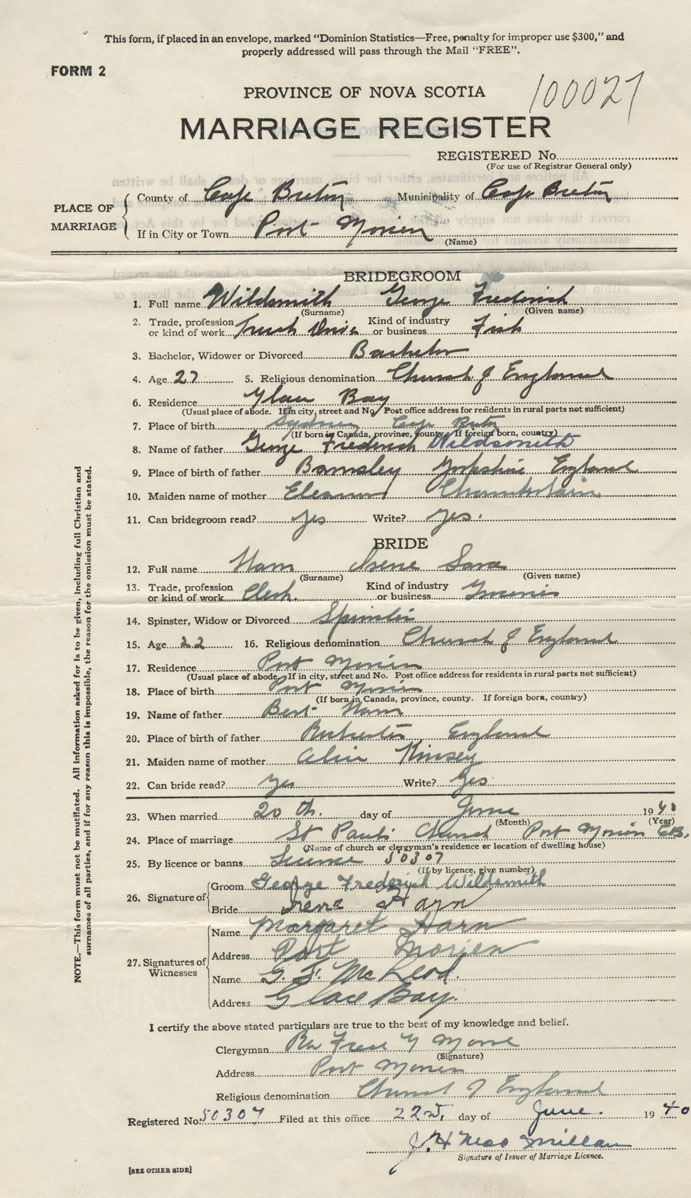 This form, if placed in an envelope, marked "Dominion Statistics—Free, penalty for improper use $300," and
properly addressed will pass through the Mail "FREE".
FORM 2
100027
PROVINCE OF NOVA SCOTIA
MARRIAGE REGISTER
REGISTERED No.
(For use of Registrar General only)
PLACE OF MARRIAGE
County of Cape Breton Municipality of Cape Breton
If in City or Town Port Morien
(Name)
BRIDEGROOM
1. Full name Wildsmith George Frederick
(Surname) (Given name)
2. Trade, profession or kind of work Truck Driver Kind of industry or business Fish
3. Bachelor, Widower or Divorced Bachelor
4. Age 27 5. Religious denomination Church of England
6. Residence Glace Bay
(Usual place of abode. If in city, street and No. Post office address for residents in rural parts not sufficient)
7. Place of birth Sydney Cape Breton
(If born in Canada, province, county. If foreign born, country)
8. Name of father George Frederick Wildsmith
9. Place of birth of father Barnsley Yorkshire England
10. Maiden name of mother Eleanor Chamberlain
11. Can bridegroom read? yes Write? yes.
BRIDE
12. Full name Harn Irene Sara
(Surname) (Given name)
13. Trade, profession or kind of work Clerk. Kind of industry or business Groceries
14. Spinster, Widow or Divorced Spinster
15. Age 22 16. Religious denomination Church of England
17. Residence Port Morien
(Usual place of abode. If in city, street and No. Post office address for residents in rural parts not sufficient)
18. Place of birth Port Morien
(If born in Canada, province, county. If foreign born, country)
19. Name of father Bert Harn
20. Place of birth of father England
21. Maiden name of mother Kinsey
22. Can bride read? yes Write? Yes
23. When married 20th. day of June 1940
(Month) (Year)
24. Place of marriage St Paul's Church Port Morien C.B.
(Name of church or clergyman's residence or location of dwelling house)
25. By licence or banns License 50307
(If by licence, give number)
26. Signature of
Groom George Frederick Wildsmith
Bride Irene Harn
27. Signatures of Witnesses
Name Margaret Harn
Address Port Morien
Name G. F. McLeod
Address Glace Bay.
I certify the above stated particulars are true to the best of my knowledge and belief.
Clergyman Rev Fred Y Morse
(Signature)
Address Port Morien
Religious denomination Church of England
Registered No. 50307 Filed at this office 22nd. day of June. 1940
J. H.
Signature of Issuer of Marriage Licence.
[SEE OTHER SIDE]
NOTE.—This form must not be mutilated. All information asked for is to be given, including full Christian and
surnames of all parties, and if for any reason this is impossible, the reason for the omission must be stated.